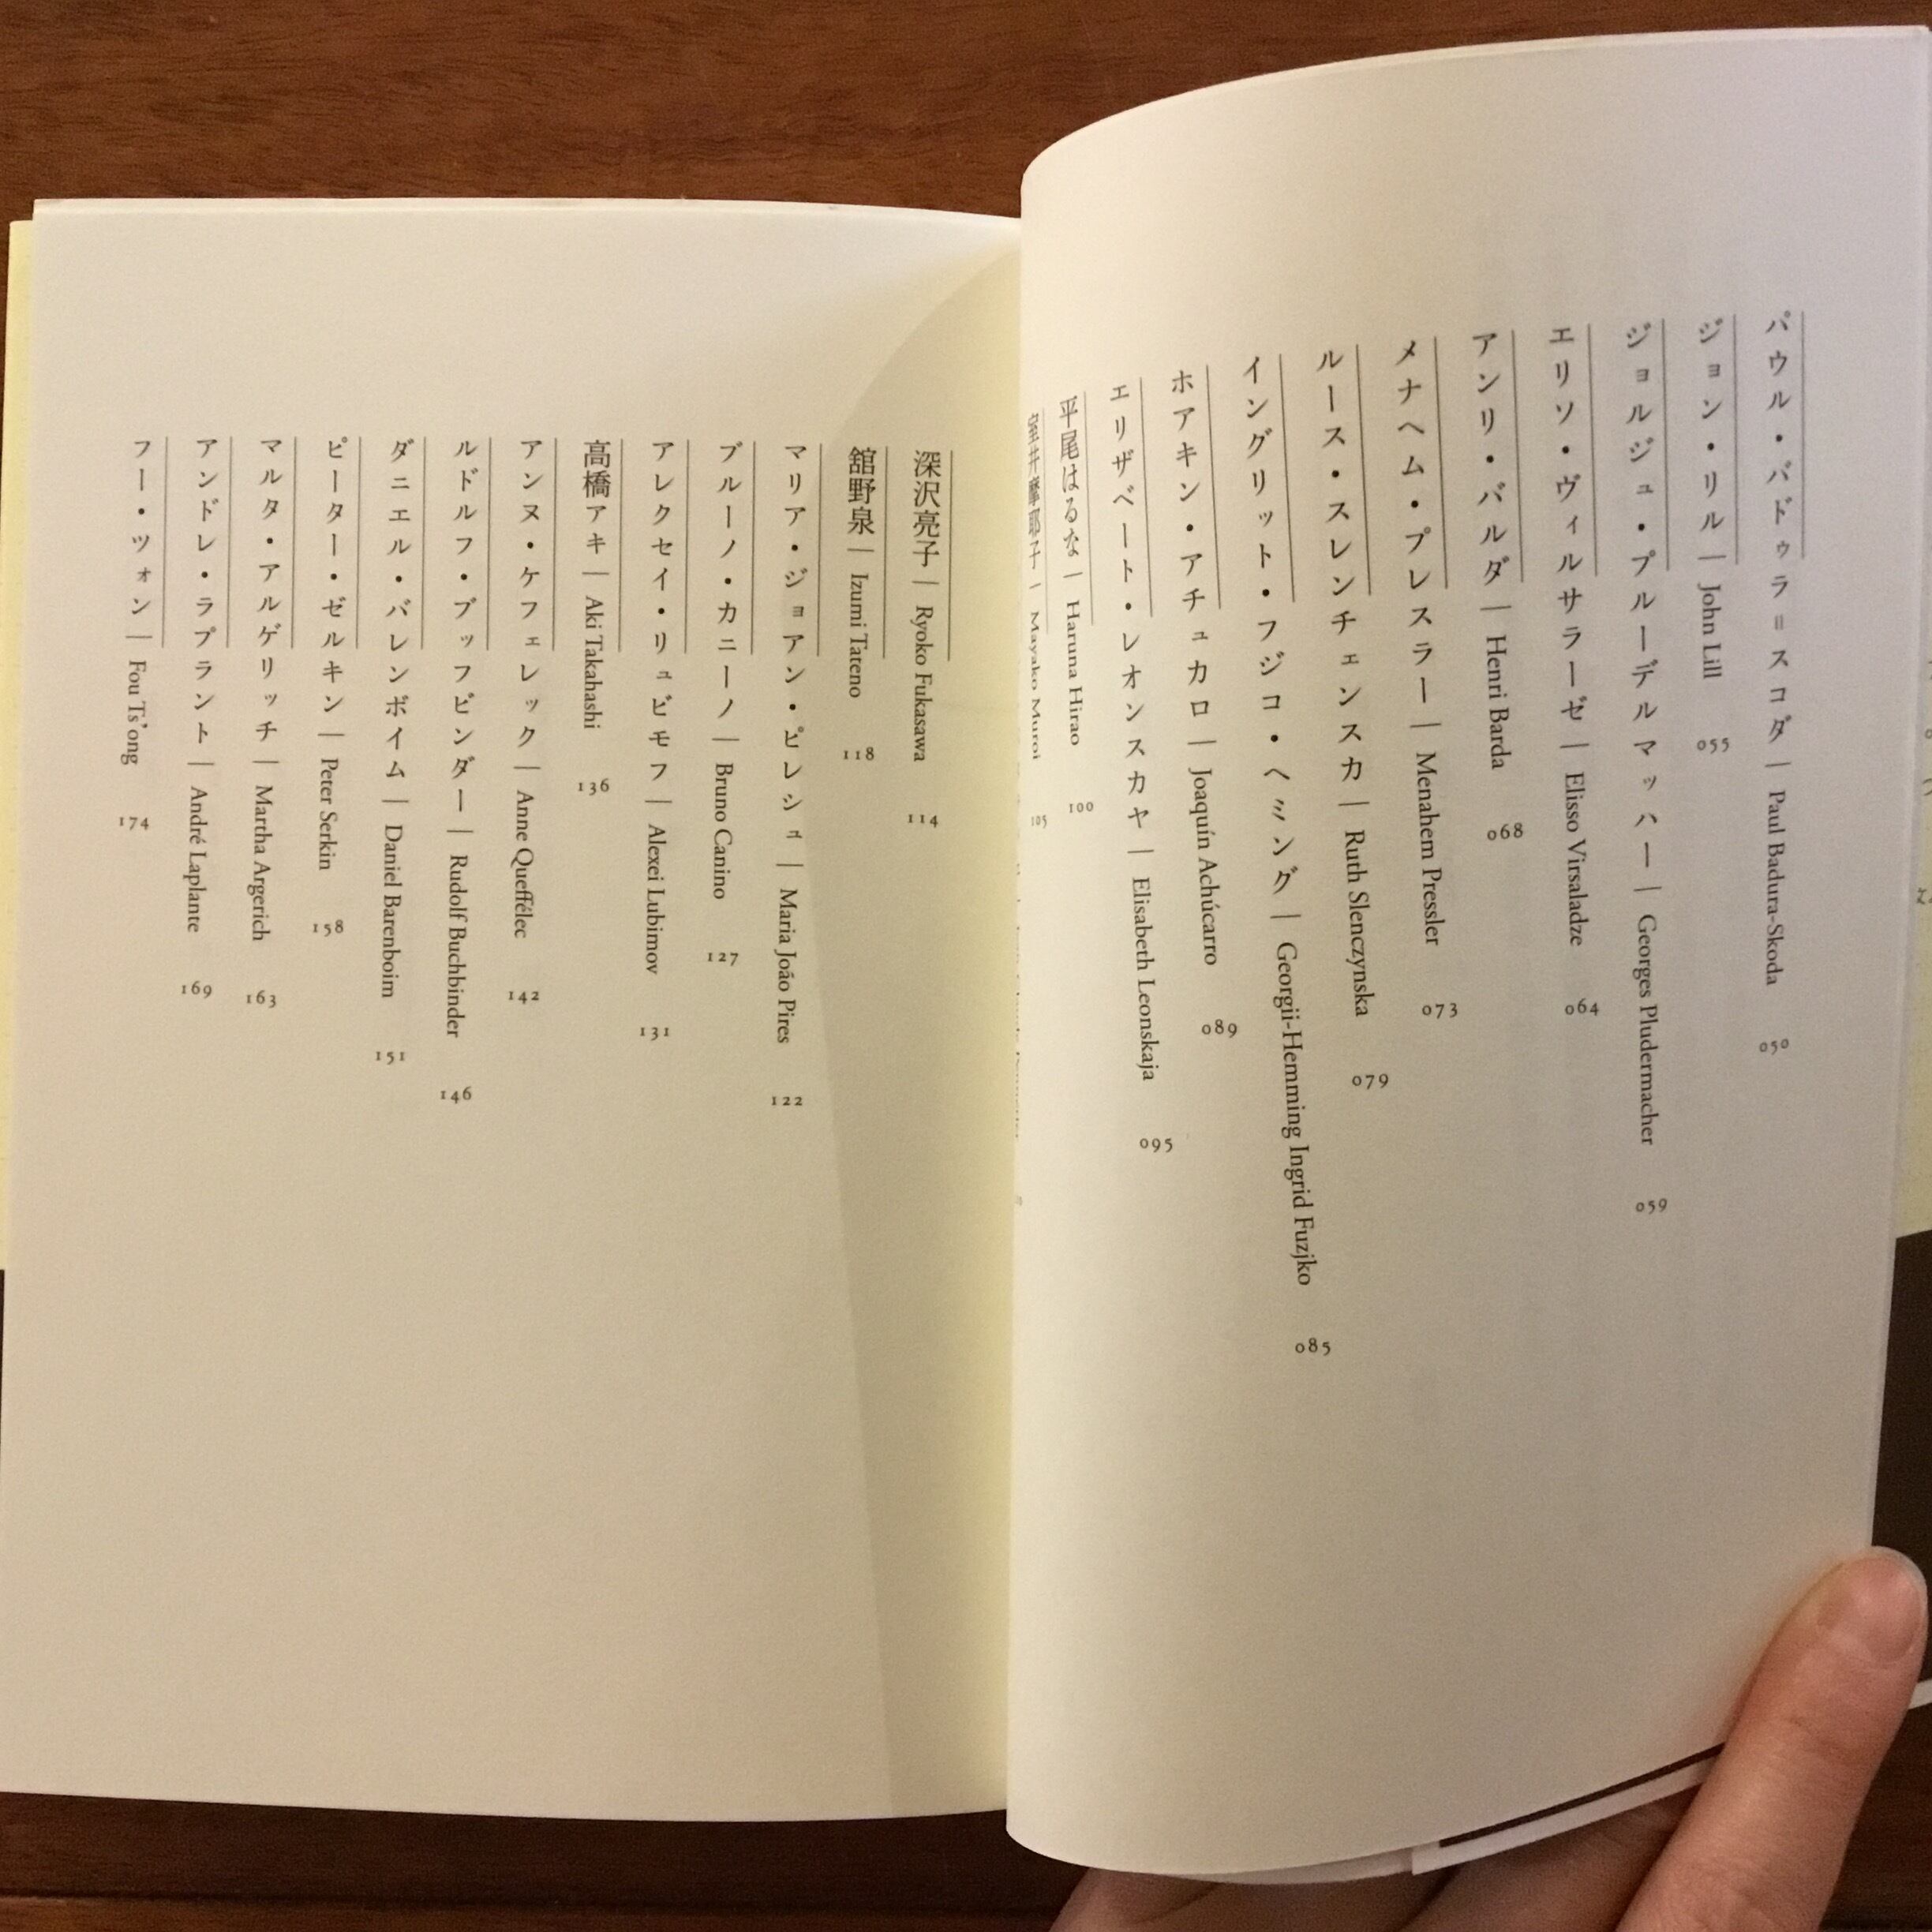 パウル・バドゥラ=スコダ | Paul Badura-Skoda 050
ジョン・リル | John Lill 055
ジョルジュ・プルーデルマッハー | Georges Pludermacher 059
エリソ・ヴィルサラーゼ | Elisso Virsaladze 064
アンリ・バルダ | Henri Barda 068
メナヘム・プレスラー | Menahem Pressler 073
ルース・スレンチェンスカ | Ruth Slenczynska 079
イングリット・フジコ・ヘミング | Georgii-Hemming Ingrid Fuzjko 085
ホアキン・アチュカロ | Joaquín Achúcarro 089
エリザベート・レオンスカヤ | Elisabeth Leonskaja 095
平尾はるな | Haruna Hirao 100
室井摩耶子 | Mayako Muroi 105
深沢亮子 | Ryoko Fukasawa 114
舘野泉 | Izumi Tateno 118
マリア・ジョアン・ピレシュ | Maria João Pires 122
ブルーノ・カニーノ | Bruno Canino 127
アレクセイ・リュビモフ | Alexei Lubimov 131
高橋アキ | Aki Takahashi 136
アンヌ・ケフェレック | Anne Queffélec 142
ルドルフ・ブッフビンダー | Rudolf Buchbinder 146
ダニエル・バレンボイム | Daniel Barenboim 151
ピーター・ゼルキン | Peter Serkin 158
マルタ・アルゲリッチ | Martha Argerich 163
アンドレ・ラプラント | André Laplante 169
フー・ツォン | Fou Ts'ong 174